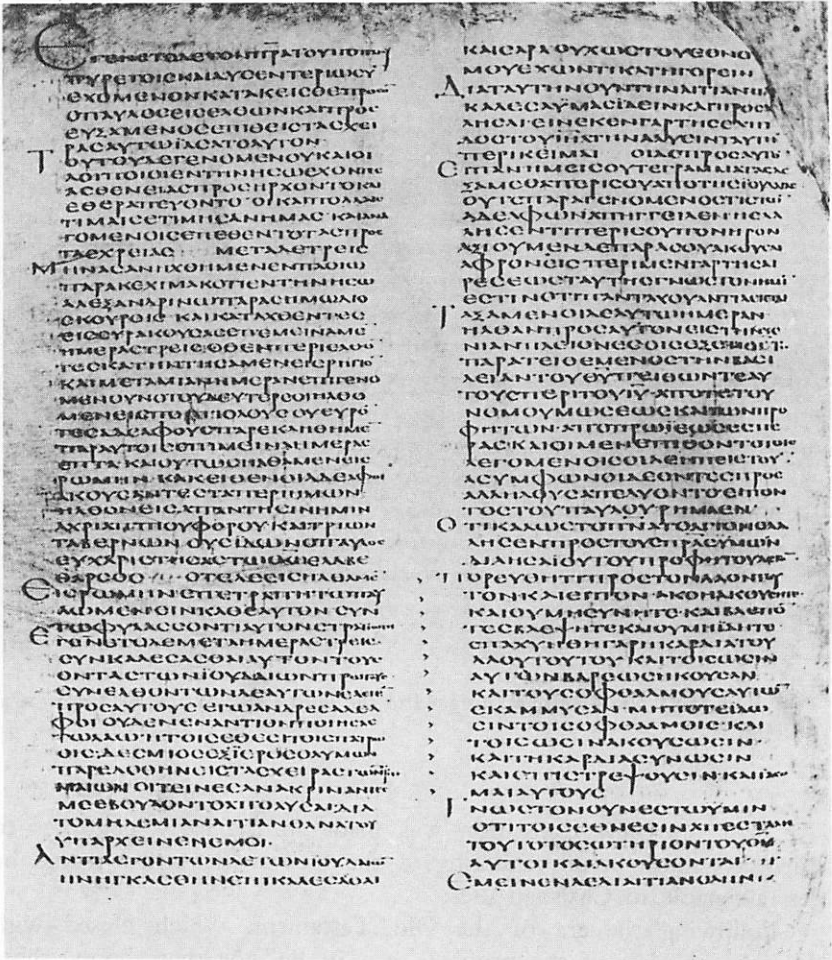 ΕΓΕΝΕΤΟΔΕΤΟΝΠΡΑΤΟΥΠΟΠΛΙΟΥ
ΠΥΡΕΤΟΙΣΚΑΙΔΥΣΕΝΤΕΡΙΩΣΥ
ΕΧΟΜΕΝΟΝΚΑΤΑΚΕΙΣΘΕΠΡΟΣΟΝ
ΟΠΑΥΛΟΣΕΙΣΕΛΘΩΝΚΑΙΠΡΟΣ
ΕΥΞΑΜΕΝΟΣΕΠΙΘΕΙΣΤΑΣΧΕΙ
ΡΑΣΑΥΤΩΙΑΣΑΤΟΑΥΤΟΝ
ΤΟΥΤΟΥΔΕΓΕΝΟΜΕΝΟΥΚΑΙΟΙ
ΛΟΙΠΟΙΟΙΕΝΤΗΝΗΣΩΕΧΟΝΤΕΣ
ΑΣΘΕΝΕΙΑΣΠΡΟΣΗΡΧΟΝΤΟΚΑΙ
ΕΘΕΡΑΠΕΥΟΝΤΟ ΟΙΚΑΙΠΟΛΛΑΙΣ
ΤΙΜΑΙΣΕΤΙΜΗΣΑΝΗΜΑΣ ΚΑΙΑΝΑ
ΓΟΜΕΝΟΙΣΕΠΕΘΕΝΤΟΤΑΣΠΡΟΣ
ΤΑΣΧΡΕΙΑΣ ΜΕΤΑΔΕΤΡΕΙΣ
ΜΗΝΑΣΑΝΗΧΘΗΜΕΝΕΝΠΛΟΙΩ
ΠΑΡΑΚΕΧΙΜΑΚΟΤΙΕΝΤΗΝΗΣΩ
ΑΛΕΞΑΝΔΡΙΝΩΠΑΡΑΣΗΜΩΔΙΟ
ΣΚΟΥΡΟΙΣ ΚΑΙΚΑΤΑΧΘΕΝΤΕΣ
ΕΙΣΣΥΡΑΚΟΥΣΑΣΕΠΕΜΕΙΝΑΜΕ
ΗΜΕΡΑΣΤΡΕΙΣΟΘΕΝΠΕΡΙΕΛΘΟ
ΤΕΣΚΑΤΗΝΤΗΣΑΜΕΝΕΙΣΡΗΓΙΟ
ΚΑΙΜΕΤΑΜΙΑΝΗΜΕΡΑΝΕΠΙΓΕΝΟ
ΜΕΝΟΥΝΟΤΟΥΔΕΥΤΕΡΟΙΗΛΘΟ
ΜΕΝΕΙΣΠΟΤΙΟΛΟΥΣΟΥΕΥΡΟ
ΤΕΣΑΔΕΛΦΟΥΣΠΑΡΕΚΛΗΘΗΜΕ
ΠΑΡΑΥΤΟΙΣΕΠΙΜΕΙΝΑΙΗΜΕΡΑΣ
ΕΠΤΑ ΚΑΙΟΥΤΩΣΗΛΘΑΜΕΝΕΙΣ
ΡΩΜΗΝ ΚΑΚΕΙΘΕΝΟΙΑΔΕΛΦΟΙ
ΑΚΟΥΣΑΝΤΕΣΤΑΠΕΡΙΗΜΩΝ
ΗΛΘΟΝΕΙΣΑΠΑΝΤΗΣΙΝΗΜΙΝ
ΑΧΡΙΑΠΠΙΟΥΦΟΡΟΥ ΚΑΙΤΡΙΩΝ
ΤΑΒΕΡΝΩΝ ΟΥΣΙΔΩΝΟΠΑΥΛΟΣ
ΕΥΧΑΡΙΣΤΗΣΑΣΤΩΘΩΕΛΑΒΕ
ΘΑΡΣΟΣ ΟΤΕΔΕΕΙΣΗΛΘΑΜΕ
ΕΙΣΡΩΜΗΝΕΠΕΤΡΑΠΗΤΩΠΑΥ
ΛΩΜΕΝΕΙΝΚΑΘΕΑΥΤΟΝΣΥΝ
ΤΩΦΥΛΑΣΣΟΝΤΙΑΥΤΟΝΣΤΡΑΤΙΩΤΗ
ΕΓΕΝΕΤΟΔΕΜΕΤΑΗΜΕΡΑΣΤΡΕΙΣ
ΣΥΝΚΑΛΕΣΑΣΘΑΙΑΥΤΟΝΤΟΥΣ
ΟΝΤΑΣΤΩΝΙΟΥΔΑΙΩΝΠΡΩΤΟΥΣ
ΣΥΝΕΛΘΟΝΤΩΝΔΕΑΥΤΩΝΕΛΕΓΕ
ΠΡΟΣΑΥΤΟΥΣΕΓΩΑΝΔΡΕΣΑΔΕΛ
ΦΟΙΟΥΔΕΝΕΝΑΝΤΙΟΝΠΟΙΗΣΑΣ
ΤΩΛΑΩΗΤΟΙΣΕΘΕΣΙΤΟΙΣΠΑΤΡΩ
ΟΙΣ ΔΕΣΜΙΟΣΕΞΙΕΡΟΣΟΛΥΜΩΝ
ΠΑΡΕΔΟΘΗΝΕΙΣΤΑΣΧΕΙΡΑΣΤΩΝΡΩ
ΜΑΙΩΝ ΟΙΤΕΙΝΕΣΑΝΑΚΡΙΝΑΝΤΕΣ
ΜΕΕΒΟΥΛΟΝΤΟΑΠΟΛΥΣΑΙΔΙΑ
ΤΟΜΗΔΕΜΙΑΝΑΙΤΙΑΝΘΑΝΑΤΟΥ
ΥΠΑΡΧΕΙΝΕΝΕΜΟΙ
ΑΝΤΙΛΕΓΟΝΤΩΝΔΕΤΩΝΙΟΥΔΑΙΩΝ
ΗΝΑΓΚΑΣΘΗΝΕΠΙΚΑΛΕΣΑΣΘΑΙ
ΚΑΙΣΑΡΑΟΥΧΩΣΤΟΥΕΘΝΟΥΣ
ΜΟΥΕΧΩΝΤΙΚΑΤΗΓΟΡΕΙΝ
ΔΙΑΤΑΥΤΗΝΟΥΝΤΗΝΑΙΤΙΑΝΠΑΡΕ
ΚΑΛΕΣΑΥΜΑΣΙΔΕΙΝΚΑΙΠΡΟΣΛΑ
ΛΗΣΑΙΕΙΝΕΚΕΝΓΑΡΤΗΣΕΛΠΙ
ΔΟΣΤΟΥΙΗΛΤΗΝΑΛΥΣΙΝΤΑΥΤΗ
ΠΕΡΙΚΕΙΜΑΙ ΟΙΔΕΠΡΟΣΑΥΤΟΝ
ΕΙΠΑΝΗΜΕΙΣΟΥΤΕΓΡΑΜΜΑΤΑΕΔΕ
ΞΑΜΕΘΑΠΕΡΙΣΟΥΑΠΟΤΗΣΙΟΥΔΑΙΑΣ
ΟΥΤΕΠΑΡΑΓΕΝΟΜΕΝΟΣΤΙΣΤΩΝ
ΑΔΕΛΦΩΝΑΠΗΓΓΕΙΛΕΝΗΕΛΑ
ΛΗΣΕΝΤΙΠΕΡΙΣΟΥΠΟΝΗΡΟΝ
ΑΞΙΟΥΜΕΝΔΕΠΑΡΑΣΟΥΑΚΟΥΣΑΙ
ΑΦΡΟΝΕΙΣΠΕΡΙΜΕΝΓΑΡΤΗΣΑΙ
ΡΕΣΕΩΣΤΑΥΤΗΣΓΝΩΣΤΟΝΗΜΙΝ
ΕΣΤΙΝΟΤΙΠΑΝΤΑΧΟΥΑΝΤΙΛΕΓΕΤΑΙ
ΤΑΞΑΜΕΝΟΙΔΕΑΥΤΩΗΜΕΡΑΝ
ΗΛΘΑΝΠΡΟΣΑΥΤΟΝΕΙΣΤΗΝΞΕ
ΝΙΑΝΠΛΙΟΝΕΣΟΙΣΕΞΕΤΙΘΕΤΟ
ΠΑΡΑΤΕΙΘΕΜΕΝΟΣΤΗΝΒΑΣΙ
ΛΕΙΑΝΤΟΥΘΥΠΕΙΘΩΝΤΕΑΥ
ΤΟΥΣΠΕΡΙΤΟΥΙΥ ΑΠΟΤΕΤΟΥ
ΝΟΜΟΥΜΩΣΕΩΣΚΑΙΤΩΝΠΡΟ
ΦΗΤΩΝ ΑΠΟΠΡΩΙΕΩΣΕΣΠΕ
ΡΑΣ ΚΑΙΟΙΜΕΝΕΠΙΘΟΝΤΟΤΟΙΣ
ΛΕΓΟΜΕΝΟΙΣΟΙΔΕΗΠΕΙΣΤΟΥ
ΑΣΥΜΦΩΝΟΙΔΕΟΝΤΕΣΠΡΟΣ
ΑΛΛΗΛΟΥΣΑΠΕΛΥΟΝΤΟΕΙΠΟΝ
ΤΟΣΤΟΥΠΑΥΛΟΥΡΗΜΑΕΝ
ΟΤΙΚΑΛΩΣΤΟΠΝΑΤΟΑΓΙΟΝΕΛΑ
ΛΗΣΕΝΠΡΟΣΤΟΥΣΠΡΑΣΥΜΩΝ
ΔΙΑΗΣΑΙΟΥΤΟΥΠΡΟΦΗΤΟΥΛΕΓΩΝ
ΠΟΡΕΥΘΗΤΙΠΡΟΣΤΟΝΛΑΟΝΤΟΥ
ΤΟΝΚΑΙΕΙΠΟΝ ΑΚΟΗΑΚΟΥΣΕΤΕ
ΚΑΙΟΥΜΗΣΥΝΗΤΕ ΚΑΙΒΛΕΠΟ
ΤΕΣΒΛΕΨΗΤΕΚΑΙΟΥΜΗΙΔΗΤΕ
ΕΠΑΧΥΝΘΗΓΑΡΗΚΑΡΔΙΑΤΟΥ
ΛΑΟΥΤΟΥΤΟΥ ΚΑΙΤΟΙΣΩΣΙΝ
ΑΥΤΩΝΒΑΡΕΩΣΗΚΟΥΣΑΝ
ΚΑΙΤΟΥΣΟΦΘΑΛΜΟΥΣΑΥΤΩΝ
ΕΚΑΜΜΥΣΑΝ ΜΗΠΟΤΕΙΔΩ
ΣΙΝΤΟΙΣΟΦΘΑΛΜΟΙΣ ΚΑΙ
ΤΟΙΣΩΣΙΝΑΚΟΥΣΩΣΙΝ
ΚΑΙΤΗΚΑΡΔΙΑΣΥΝΩΣΙΝ
ΚΑΙΕΠΙΣΤΡΕΨΟΥΣΙΝ ΚΑΙΙΑΣΟ
ΜΑΙΑΥΤΟΥΣ
ΓΝΩΣΤΟΝΟΥΝΕΣΤΩΥΜΙΝ
ΟΤΙΤΟΙΣΕΘΝΕΣΙΝΑΠΕΣΤΑΛΗ
ΤΟΥΤΟΤΟΣΩΤΗΡΙΟΝΤΟΥΘΥ
ΑΥΤΟΙΚΑΙΑΚΟΥΣΟΝΤΑΙ
ΕΜΕΙΝΕΝΔΕΔΙΕΤΙΑΝΟΛΗΝ